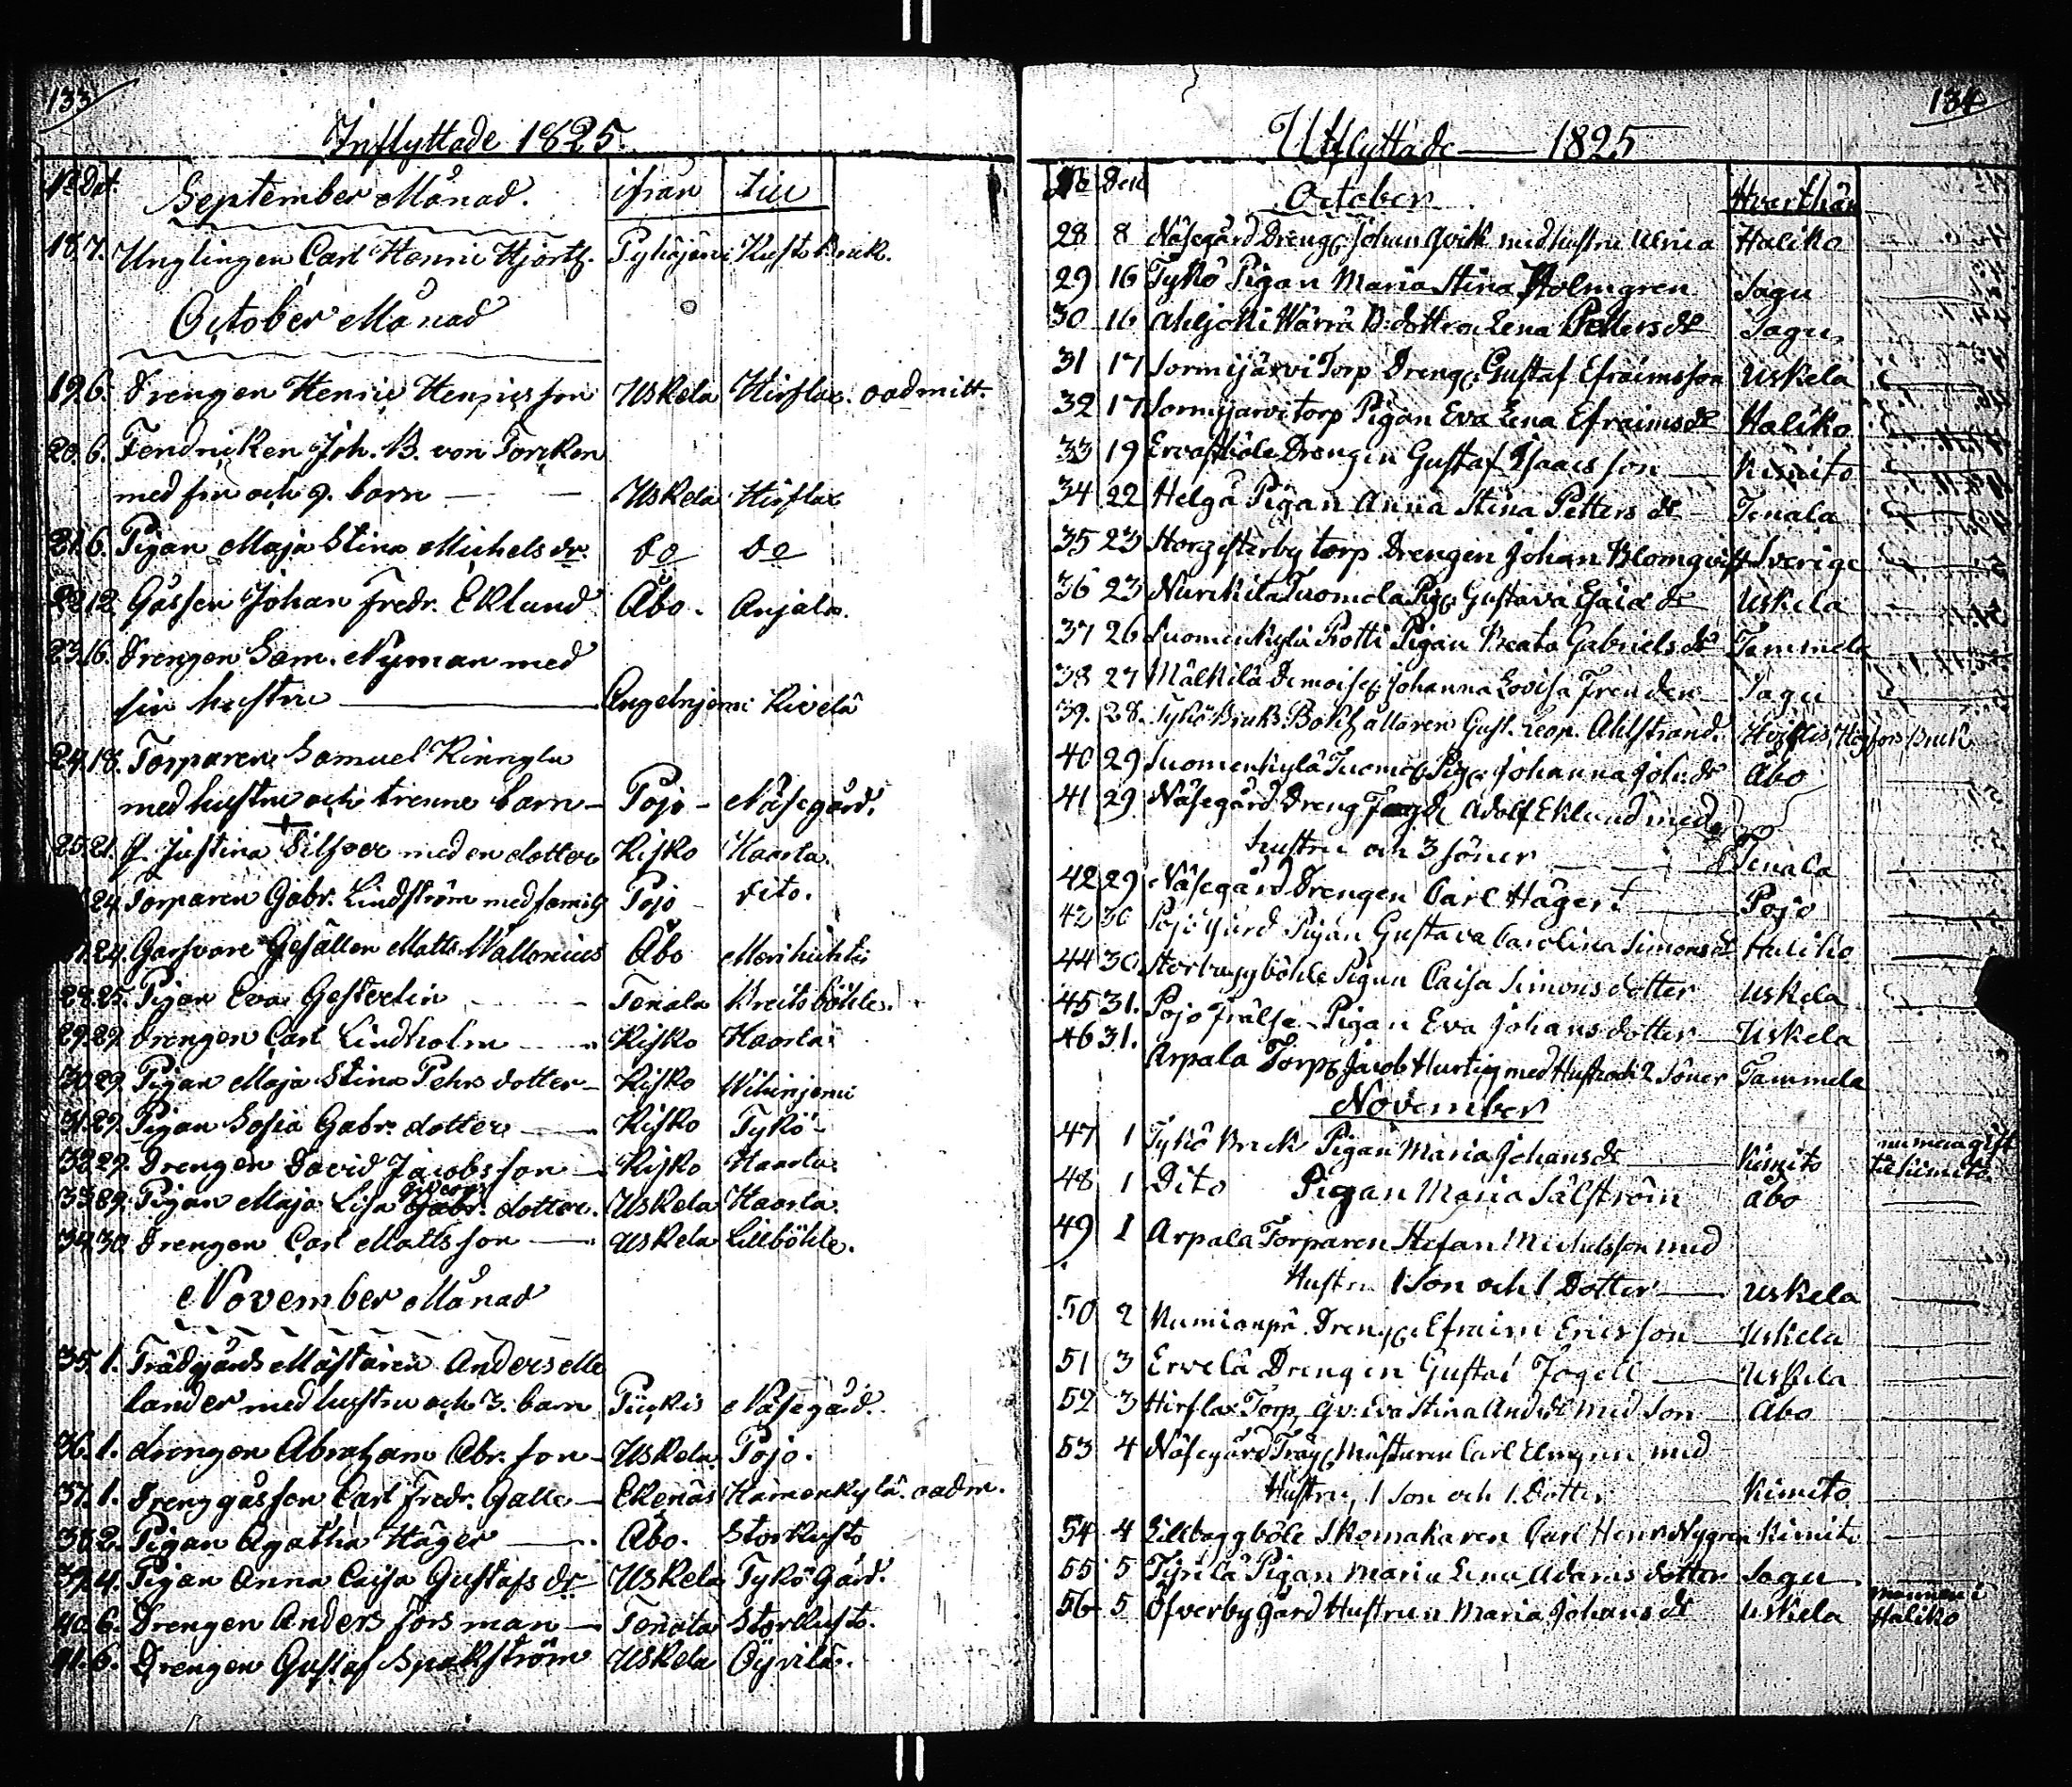 133
Inflyttade 1825.
No Dat. September Månad. ifrån till
18. 7. Ynglingen Carl Henric Hjort Pyhäjervi Kusto
October Månad
19. 6. Drengen Henric Henricsson Uskela Hirflax. oadmitt.
20. 6. Fendricken Joh. B. von Torcken
med fru och 9. barn — Uskela Hirflax
21. 6. Pigan Maja Stina Michels dr. do do
22. 12. Gåssen Johan Fredr. Eklund Åbo. Anjala.
23. 16. Drengen Sam. Nyman med
sin hustru — Angelnjemi Kivelä
24. 18. Torparen Samuel
med hustru och trenne barn — Pojo — Näsegård.
25. 21. Justina Silfver med en dotter Kisko Haarla.
24. Torparen Gabr. Lindström med familj Pojo — dito.
24. Garfvare Gesällen Matts Wallonius Åbo Merikuhti
28. 25. Pigan Eva Gesterlin Tenala Kreitsböhle.
29. 29. Drengen Carl Lindholm Kisko Haarla.
30. 29. Pigan Maja Stina Pehrs dotter — Kisko Wihinjemi
31. 29. Pigan Sofia Gabr. dotter — Kisko Tykö —
32. 29. Drengen David Jacobsson — Kisko Haarla.
33. 29. Pigan Maja Lisa Gabr. dotter. Uskela Haarla.
34. 30. Drengen Carl Mattsson — Uskela Lillböhle.
November Månad
35. 1. Trädgårds Mästaren Anders Me
lander med hustru och 3. barn Piikis Näsegård.
36. 1. drengen Abraham Abr. son — Uskela Pojo.
37. 1. Dreng gåssen Carl Fredr. Galle — Ekenäs Hämenkylä. oadm.
38. 2. Pigan Agatha Häger — Åbo. Storkusto
39. 4. Pigan Anna Caisa Gustafs dr Uskela Tykö Gård.
40. 6. Drengen Anders Forsman — Tenala Storkusto.
41. 6. Drengen Gustaf Spakström Uskela Öyvilä.
134
Utflyttade — 1825
No Den October Hvarthän
28 8 Näsegård Dreng Johan Qvick med hustru Ulrica Haliko
29 16 Tykö Pigan Maria Stina Holmgren Sagu
30 16 Ahljoki Wärrä B. dottren Lena Petters dr Sagu
31 17 Sormijärvi Torp Dreng Gustaf Efraimsson Uskela
32 17 Sormijärvi torp Pigan Eva Lena Efraims dr Haliko
33 19 Ervastböle Drengen Gustaf Isaacsson — Kimito
34 22 Helgå Pigan Anna Stina Petters dr — Tenala
35 23 torp Drengen Johan Blomqvist Sverige
36 23 Nurkkila Tuomola Pig Gustava Esaiæ dr Uskela
37 26 Suomenkylä Protti Pigan Beata Gabriels dr Tammela
38 27 Mälkilä Demoisel Johanna Lovisa Frenden Sagu
39. 28. Tykö Bruks Bokhållaren Gust. Leop. Ahlstrand. Högfors Bruk
40 29 Suomenkylä Tuomol Pig Johanna Joh. dr Åbo
41 29 Näsegård Dreng Adolf Eklund med
hustru och 3 söner — Tenala
42 29 Näsegård Drengen Carl Hägert — Pojo
42 30 Pojo Gård Pigan Gustava Carolina Simons dr Haliko
44 30 Storbaggböhle Pigan Caisa Simons dotter Uskela
45 31. Pojo Frälse Pigan Eva Johans dotter — Uskela
46 31. Arpala Torp Jacob Hurtig med Hustr och 2 Söner Tammela
November
47 1 Tykö Bruk Pigan Maria Johans dr — Kimito
till Kimito
48 1 Dito Pigan Maria Sälström Åbo
49 1 Arpala Torparen Stefan Michelsson med
Hustru 1 Son och 1 Dotter — Uskela
50 2 Dreng Efraim Ericsson — Uskela
51 3 Ervelä Drengen Gustaf Fogell — Uskela
52 3 Hirflax Torp Qv: Eva Stina And. dr med Son Åbo
53 4 Näsegård Träg Mästaren Carl Elmgren med
Hustru, 1 Son och 1. Dotter Kimito
54 4 Lillbaggböle Skomakaren Carl Henr Nygren Kimito
55 5 Tyrilä Pigan Maria Lena Adams dotter Sagu
56 5 Öfverby Gård Hustrun Maria Johans dr Uskela mannen i
Haliko